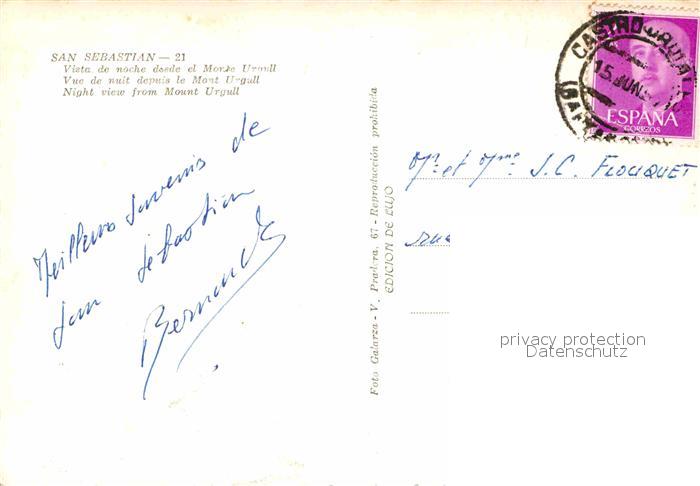 SAN SEBASTIAN — 21
Vista de noche desde el Monte Urgull
Vue de nuit depuis le Mont Urgull
Night view from Mount Urgull
Meilleurs souvenirs de
San Sébastian
Foto Galarza - V. Pradera, 67 - Reproducción prohibida
EDICION DE LUJO
CASTRO
15 JUN
ESPAÑA
CORREOS
Mr et Mme J.C. FLOUQUET
rue
privacy protection
Datenschutz